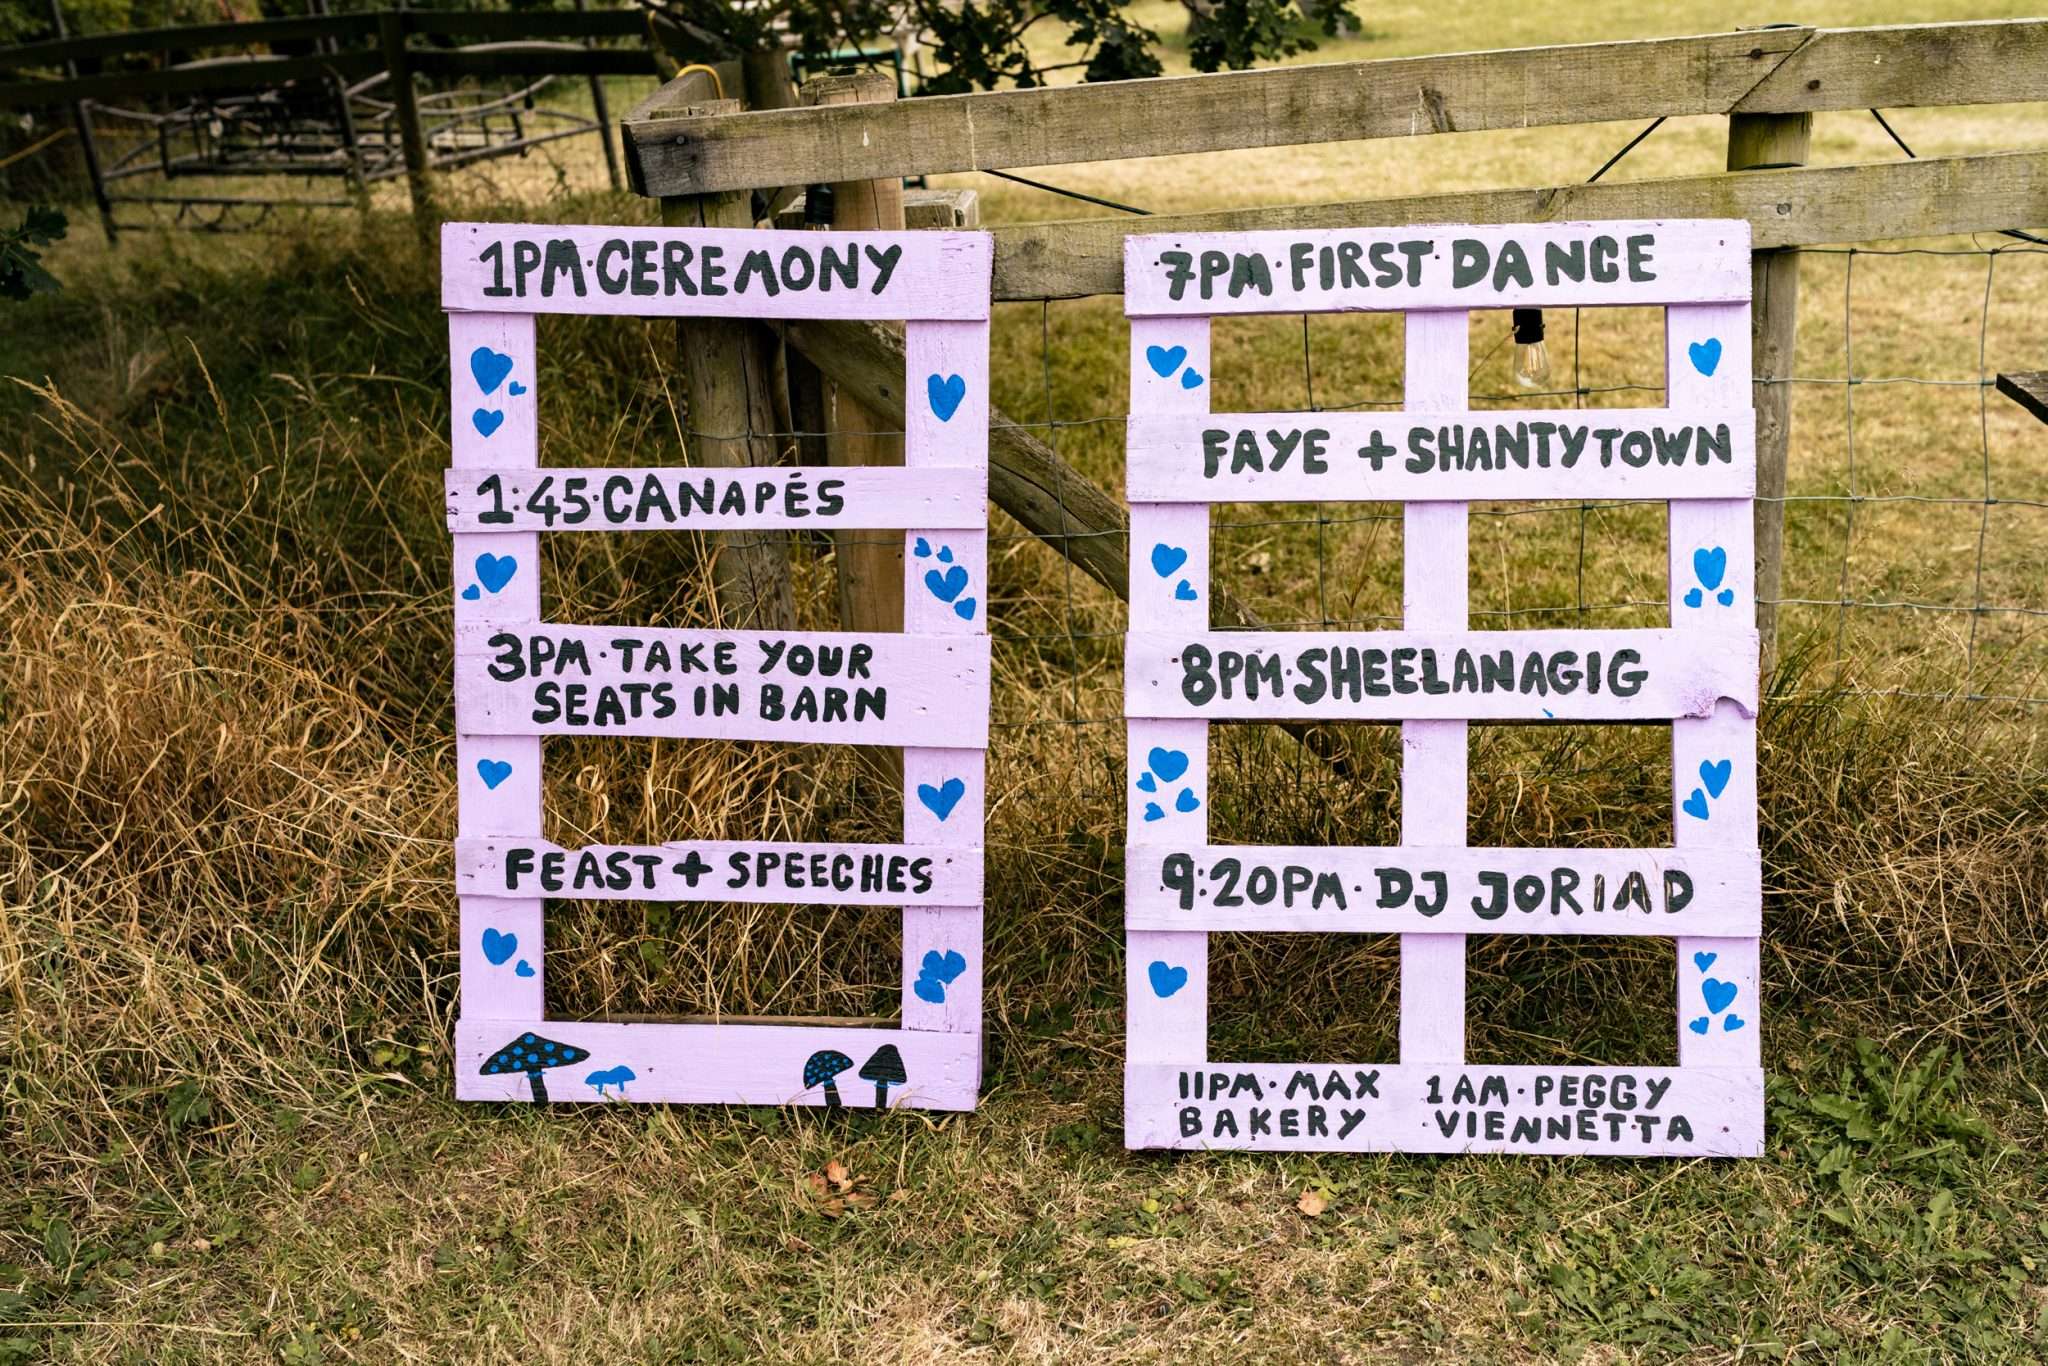 1PM·CEREMONY
1:45·CANAPÉS
3PM·TAKE YOUR
SEATS IN BARN
FEAST + SPEECHES
7PM·FIRST·DANCE
FAYE + SHANTYTOWN
8PM·SHEELANAGIG
9:20PM·DJ JORIAD
11PM·MAX
BAKERY
1AM·PEGGY
VIENNETTA